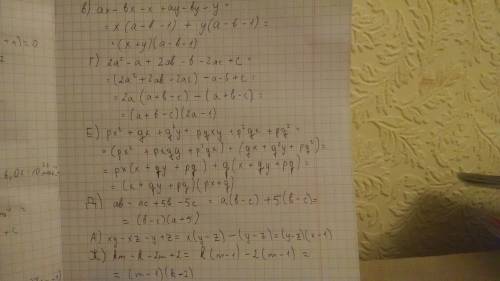 в) ax - bx - x + ay - by - y =
= x(a-b-1) + y(a-b-1) =
= (x+y)(a-b-1)
Г) 2a² - a + 2ab - b - 2ac + c =
= (2a² + 2ab - 2ac) - a - b + c =
= 2a(a+b-c) - (a+b-c) =
= (a+b-c)(2a-1)
Е) px² + qx + q²y + pqxy + p²qx + pq² =
= (px² + pxqy + p²qx) + (qx + q²y + pq²) =
= px(x + qy + pq) + q(x + qy + pq) =
= (x + qy + pq)(px+q)
Д) ab - ac + 5b - 5c = a(b-c) + 5(b-c) =
= (b-c)(a+5)
А) xy - xz - y + z = x(y-z) - (y-z) = (y-z)(x-1)
Ж) km - k - 2m + 2 = k(m-1) - 2(m-1) =
= (m-1)(k-2)